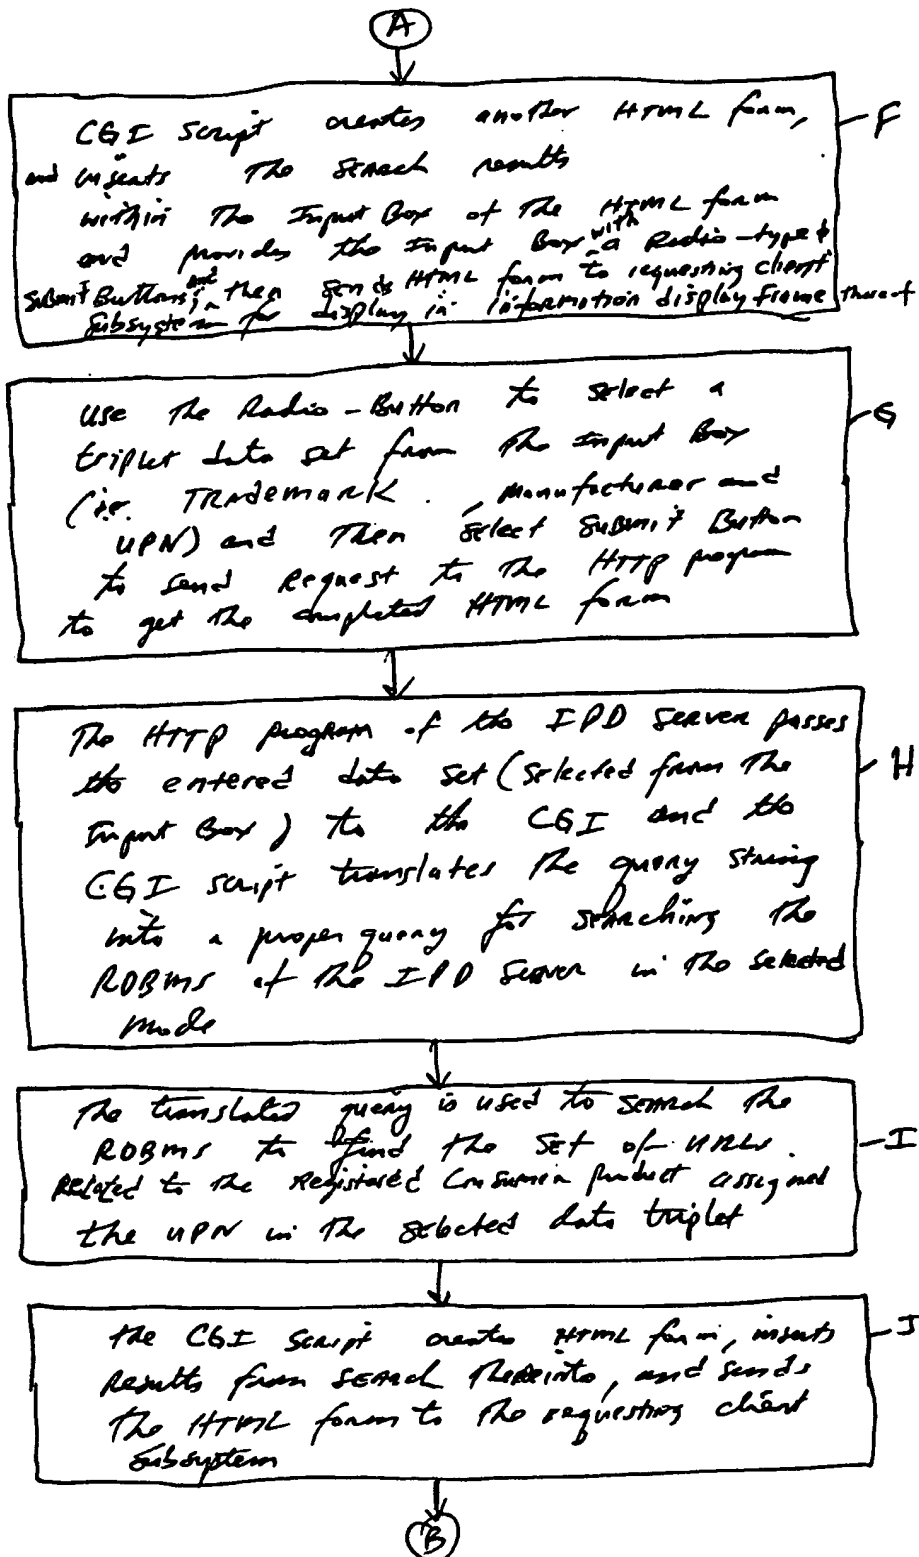 A
CGI Script creates another HTML form, F
and inserts The SEARCH results
within The Input Box of The HTML form
and provides the Input Box with a Radio-type &
Submit Buttons, and then sends HTML form to requesting client
Subsystem for display in information display Frame thereof
use The Radio-Button to select a G
triplet data set from The Input Box
(i.e. TRADEMARK, Manufacturer and
UPN) and Then select SUBMIT Button
to send Request to The HTTP program
to get The completed HTML form
The HTTP program of the IPD Server passes
the entered data set (selected from The H
Input Box) to the CGI and the
CGI script translates The query string
into a proper query for SEARching the
RDBMS of The IPD Server in The selected
Mode
The translated query is used to SEARCH The
RDBMS to find the SET of URLs I
Related to The Registered Consumer product assigned
the UPN in The selected data triplet
the CGI Script creates HTML form, inserts J
Results from SEARCH Thereinto, and sends
The HTML form to The requesting client
Subsystem
B